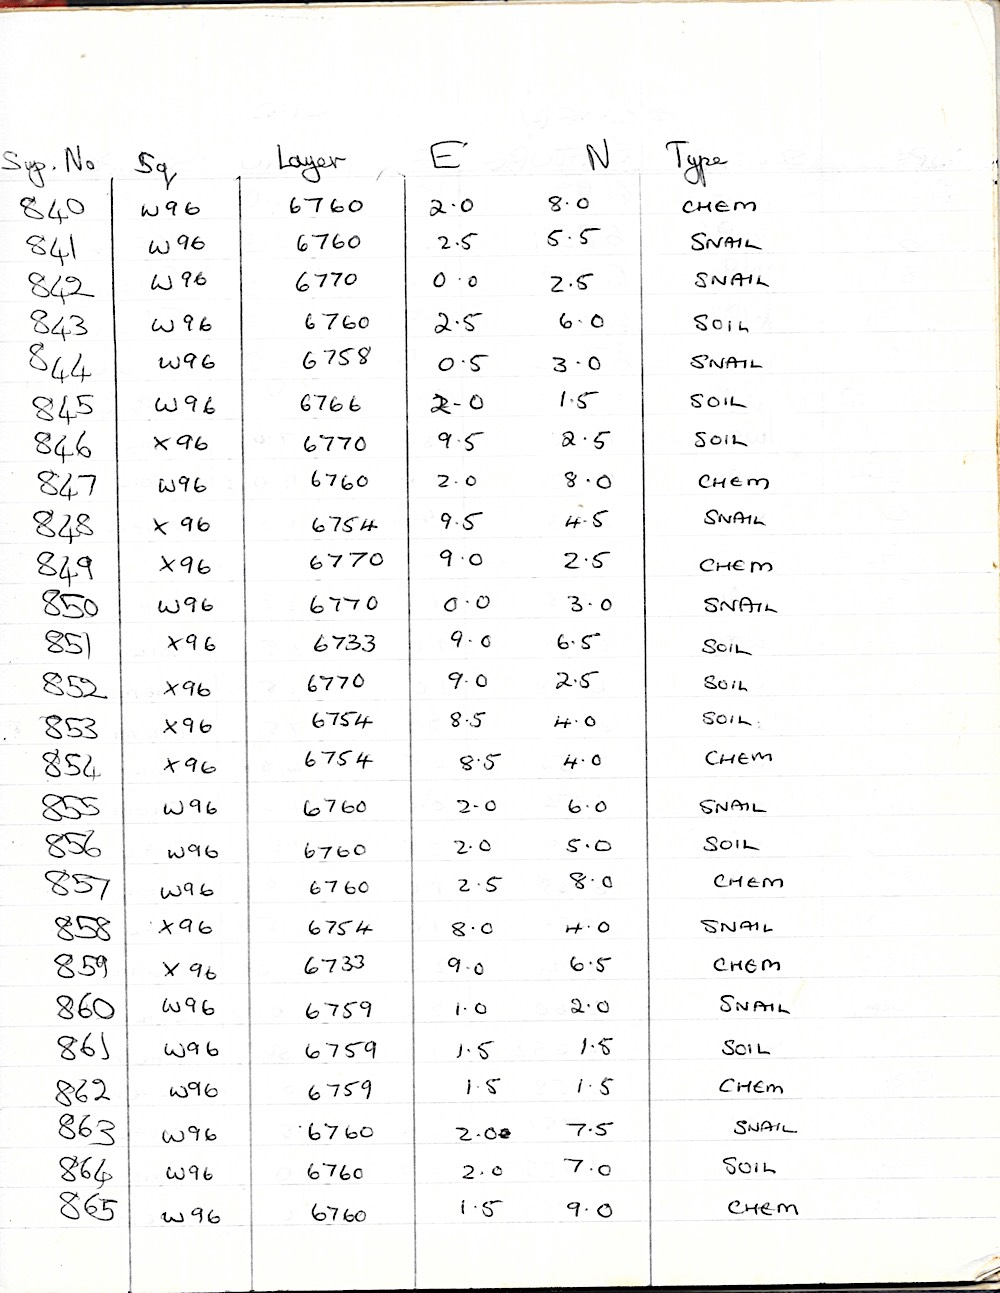 Syp. No Sq Layer E N Type
840 W96 6760 2.0 8.0 CHEM
841 W96 6760 2.5 5.5 SNAIL
842 W96 6770 0.0 2.5 SNAIL
843 W96 6760 2.5 6.0 SOIL
844 W96 6758 0.5 3.0 SNAIL
845 W96 6766 2-0 1.5 SOIL
846 X96 6770 9.5 2.5 SOIL
847 W96 6760 2.0 8.0 CHEM
848 X96 6754 9.5 4.5 SNAIL
849 X96 6770 9.0 2.5 CHEM
850 W96 6770 0.0 3.0 SNAIL
851 X96 6733 9.0 6.5 SOIL
852 X96 6770 9.0 2.5 SOIL
853 X96 6754 8.5 4.0 SOIL
854 X96 6754 8.5 4.0 CHEM
855 W96 6760 2-0 6.0 SNAIL
856 W96 6760 2.0 5.0 SOIL
857 W96 6760 2.5 8.0 CHEM
858 X96 6754 8.0 4.0 SNAIL
859 X96 6733 9.0 6.5 CHEM
860 W96 6759 1.0 2.0 SNAIL
861 W96 6759 1.5 1.5 SOIL
862 W96 6759 1.5 1.5 CHEM
863 W96 6760 2.0 7.5 SNAIL
864 W96 6760 2.0 7.0 SOIL
865 W96 6760 1.5 9.0 CHEM